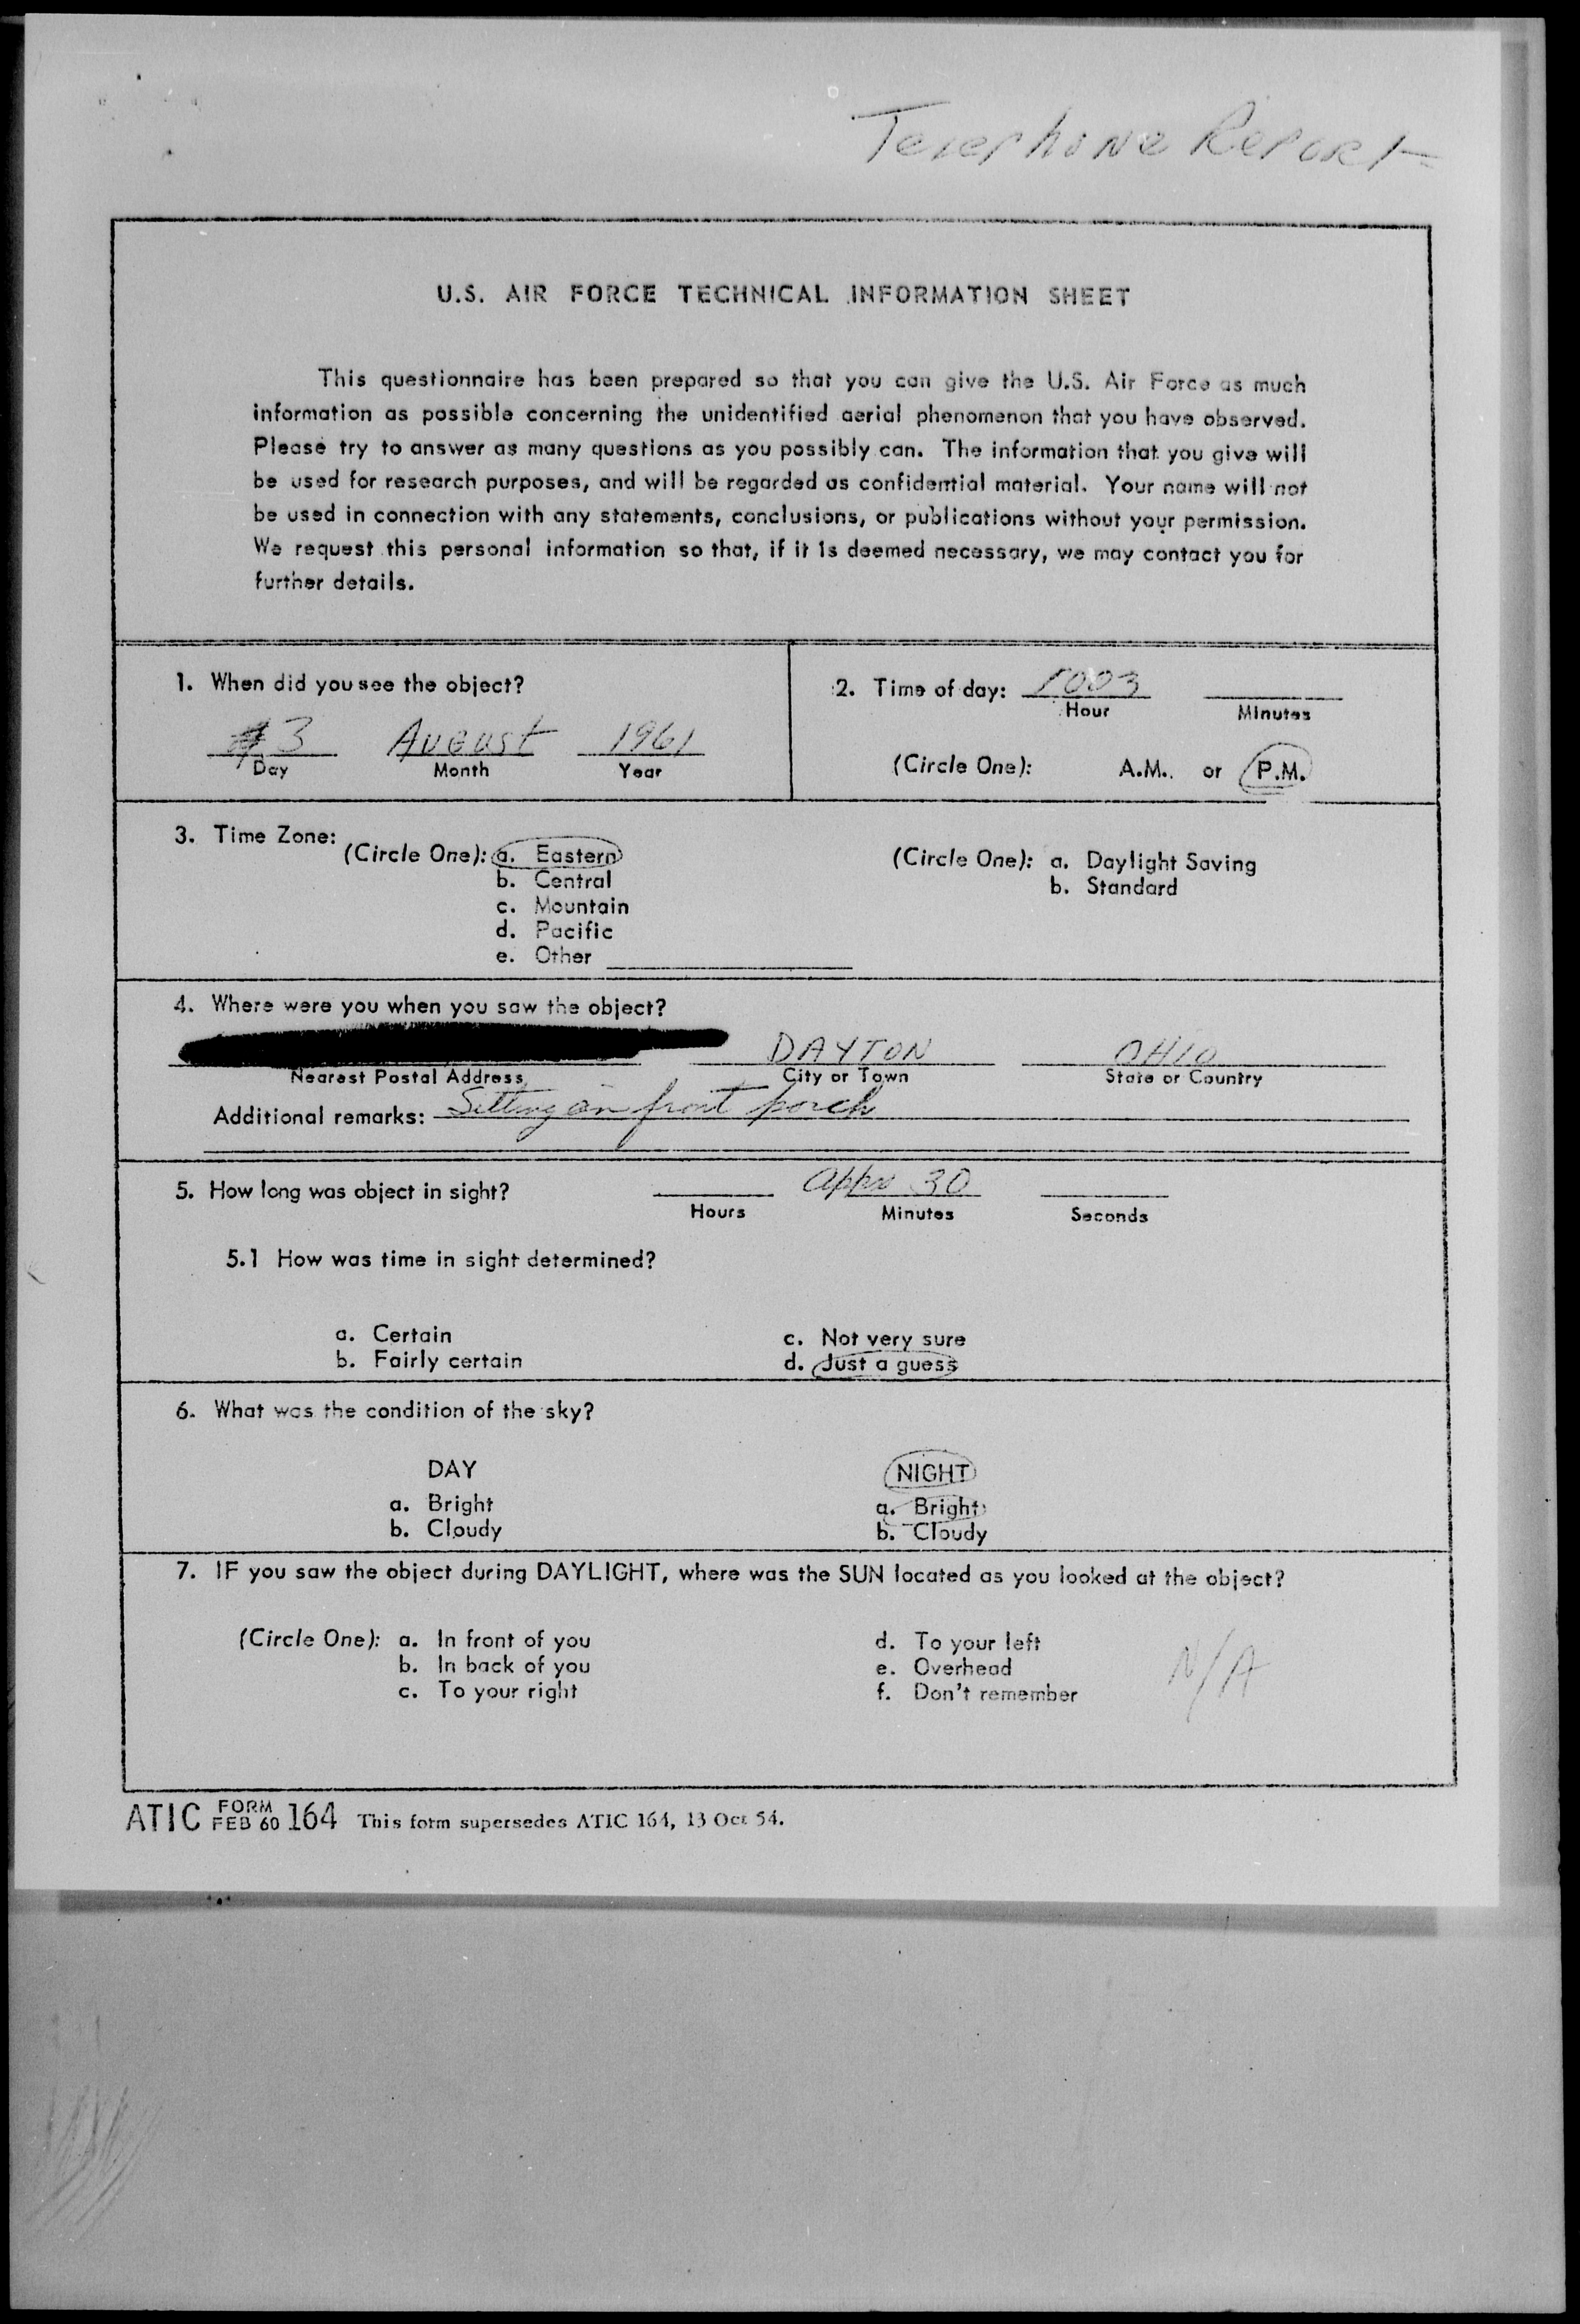 Telephone Report
U.S. AIR FORCE TECHNICAL INFORMATION SHEET
This questionnaire has been prepared so that you can give the U.S. Air Force as much
information as possible concerning the unidentified aerial phenomenon that you have observed.
Please try to answer as many questions as you possibly can. The information that you give will
be used for research purposes, and will be regarded as confidential material. Your name will not
be used in connection with any statements, conclusions, or publications without your permission.
We request this personal information so that, if it is deemed necessary, we may contact you for
further details.
1. When did you see the object?
3 August 1961
Day Month Year
2. Time of day: 1003
Hour Minutes
(Circle One): A.M. or P.M.
3. Time Zone:
(Circle One): a. Eastern
b. Central
c. Mountain
d. Pacific
e. Other
(Circle One): a. Daylight Saving
b. Standard
4. Where were you when you saw the object?
DAYTON OHIO
Nearest Postal Address City or Town State or Country
Additional remarks: Sitting on front porch
5. How long was object in sight? appx 30
Hours Minutes Seconds
5.1 How was time in sight determined?
a. Certain c. Not very sure
b. Fairly certain d. Just a guess
6. What was the condition of the sky?
DAY NIGHT
a. Bright a. Bright
b. Cloudy b. Cloudy
7. IF you saw the object during DAYLIGHT, where was the SUN located as you looked at the object?
(Circle One): a. In front of you d. To your left
b. In back of you e. Overhead N/A
c. To your right f. Don't remember
ATIC FORM FEB 60 164 This form supersedes ATIC 164, 13 Oct 54.